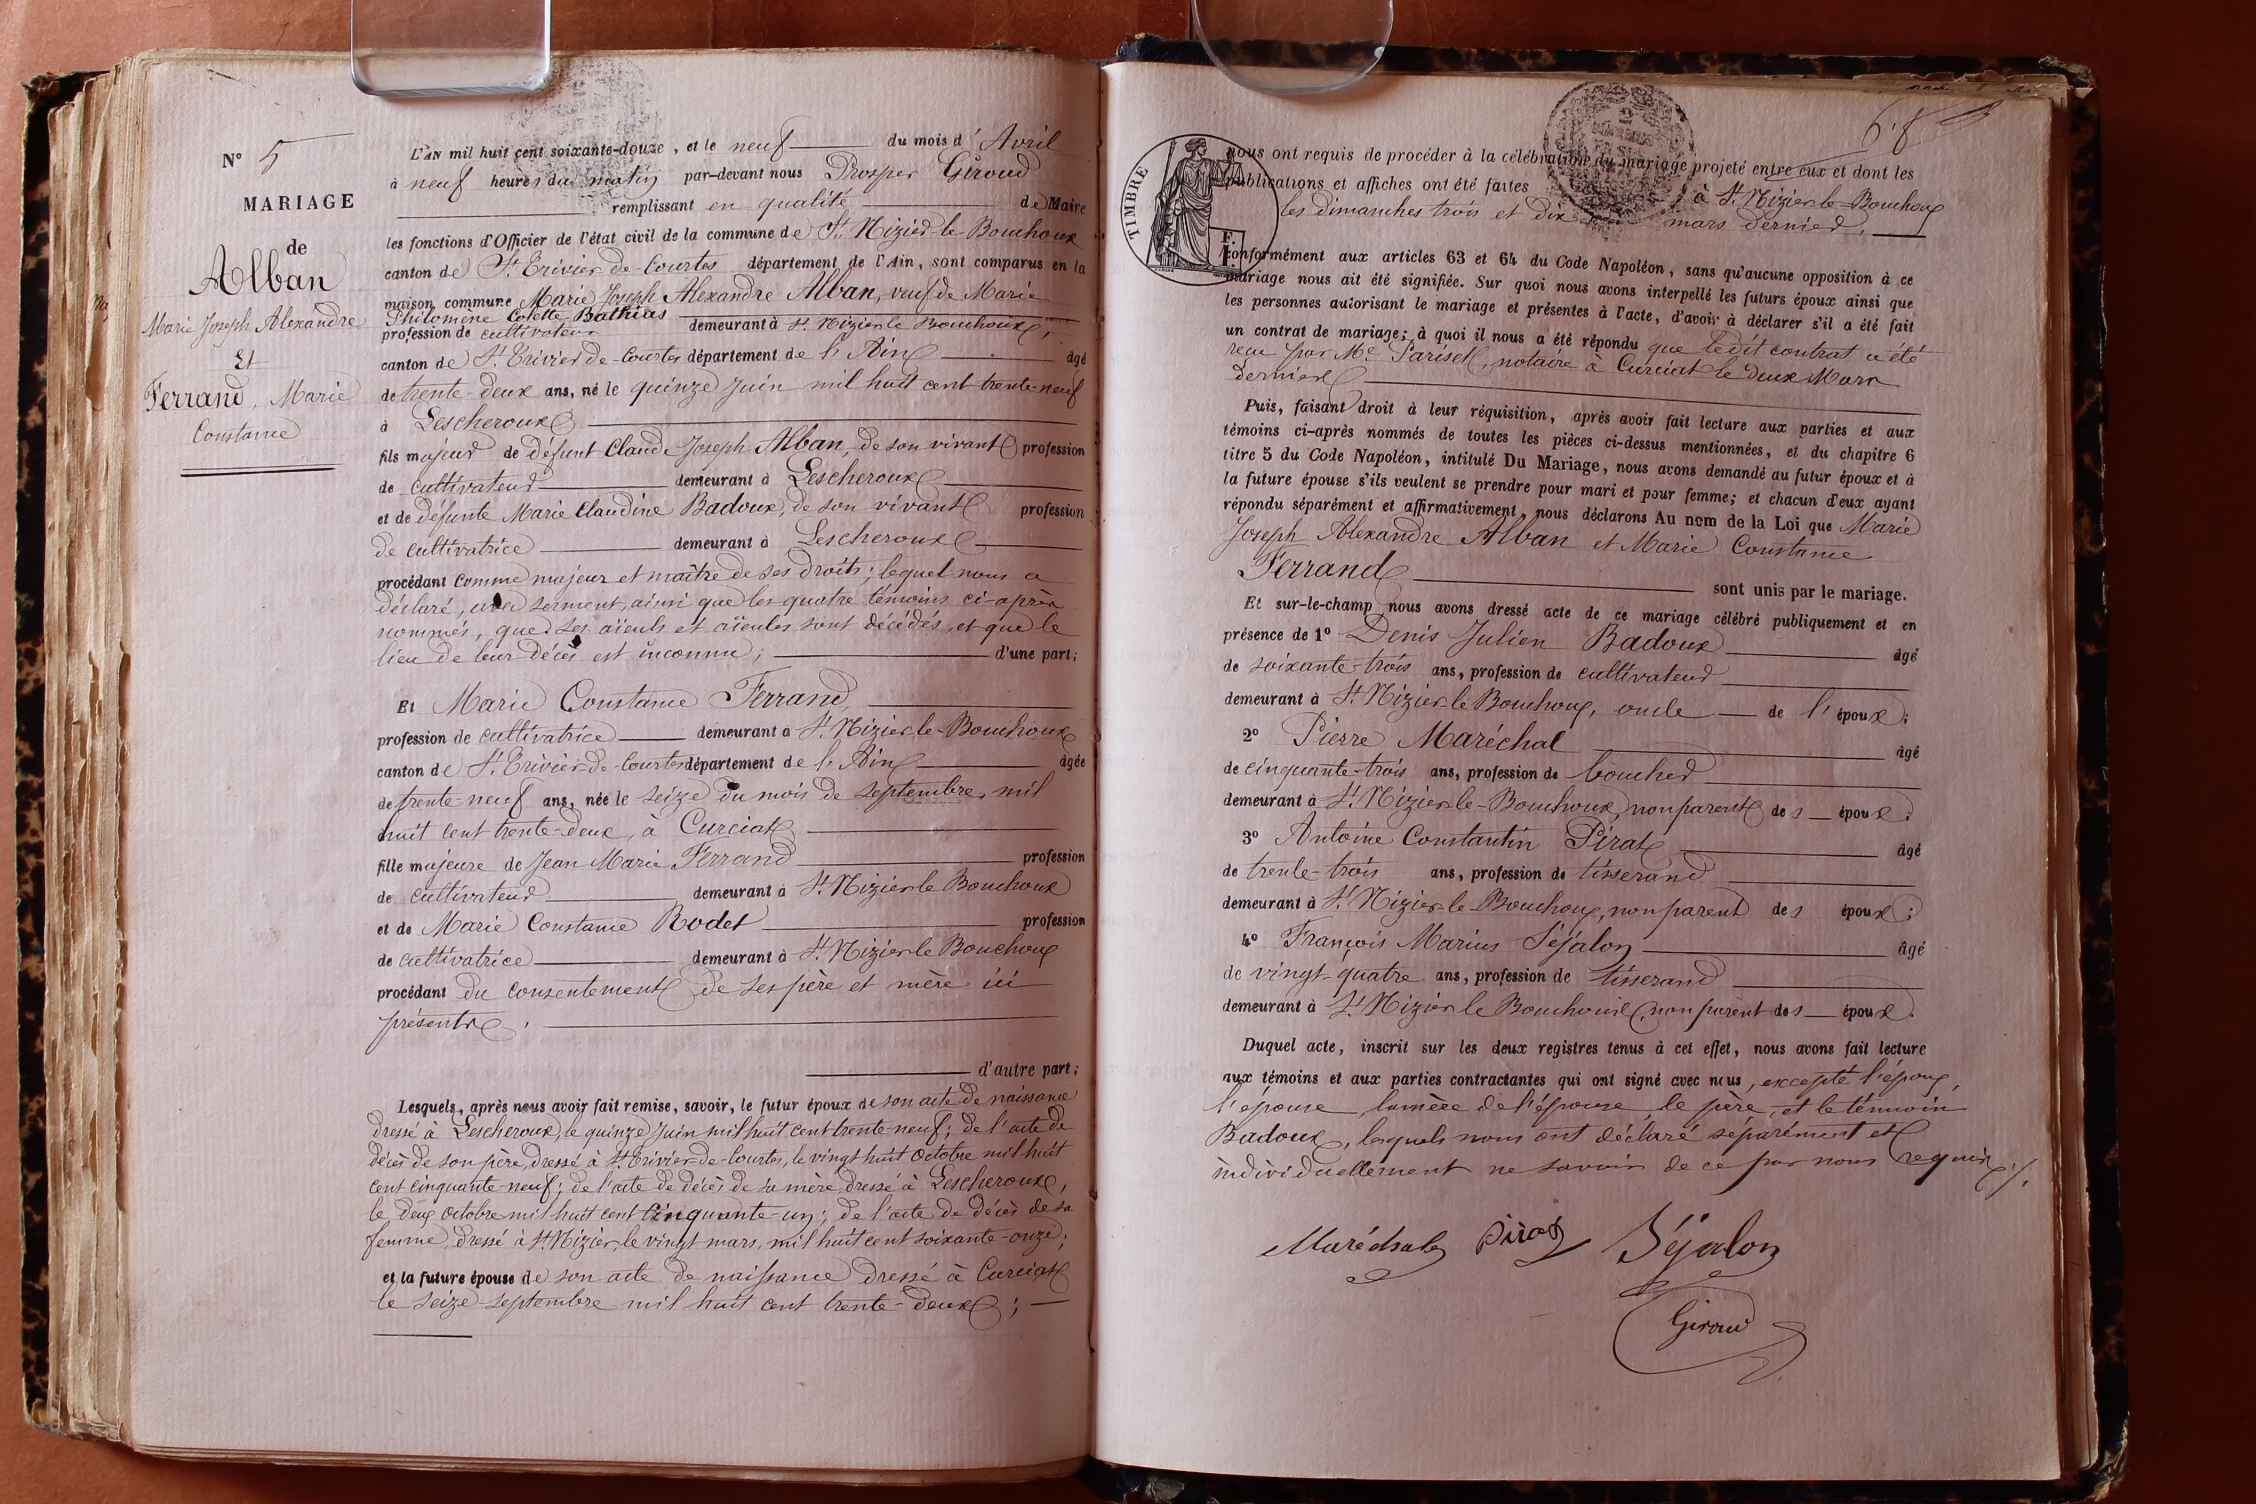 N° 5
MARIAGE
de
Alban
Marie Joseph Alexandre
Et
Ferrand, Marie
Constance
L'AN mil huit cent soixante-douze, et le neuf du mois d'Avril
à neuf heures du matin par-devant nous Prosper Giroud
remplissant en qualité de Maire
les fonctions d'Officier de l'état civil de la commune de St. Nizier-le-Bouchoux
canton de St. Trivier-de-Courtes département de l'Ain, sont comparus en la
maison commune Marie Joseph Alexandre Alban, veuf de Marie
Philomène Colette Bathias
profession de cultivateur demeurant à St. Nizier le Bouchoux,
canton de St. Trivier-de-Courtes département de l'Ain âgé
de trente-deux ans, né le quinze juin mil huit cent trente-neuf
à Lescheroux
fils majeur de défunt Claude Joseph Alban, de son vivant profession
de cultivateur demeurant à Lescheroux
et de défunte Marie Claudine Badoux, de son vivant profession
de cultivatrice demeurant à Lescheroux
procédant comme majeur et maître de ses droits; lequel nous a
déclaré, avec serment, ainsi que les quatre témoins ci-après
nommés, que ses aïeuls et aïeules sont décédés, et que le
lieu de leur décès est inconnu; d'une part;
Et Marie Constance Ferrand,
profession de cultivatrice demeurant à St. Nizier-le-Bouchoux
canton de St. Trivier-de-Courtes département de l'Ain âgée
de trente-neuf ans, née le seize du mois de septembre mil
huit cent trente-deux, à Curciat
fille majeure de Jean Marie Ferrand profession
de cultivateur demeurant à St. Nizier le Bouchoux
et de Marie Constance Rodet profession
de cultivatrice demeurant à St. Nizier le Bouchoux
procédant du consentement de ses père et mère ici
présents.
d'autre part;
Lesquels, après nous avoir fait remise, savoir, le futur époux de son acte de naissance
dressé à Lescheroux, le quinze juin mil huit cent trente-neuf; de l'acte de
décès de son père, dressé à St. Trivier-de-Courtes, le vingt huit octobre mil huit
cent cinquante-neuf; de l'acte de décès de sa mère, dressé à Lescheroux,
le deux octobre mil huit cent cinquante-un; de l'acte de décès de sa
femme, dressé à St. Nizier, le vingt mars, mil huit cent soixante-onze;
et la future épouse de son acte de naissance dressé à Curciat
le seize septembre mil huit cent trente-deux;
68
TIMBRE
F. I.
nous ont requis de procéder à la célébration du mariage projeté entre eux et dont les
publications et affiches ont été faites à St. Nizier-le-Bouchoux
les dimanches trois et dix mars dernier.
conformément aux articles 63 et 64 du Code Napoléon, sans qu'aucune opposition à ce
mariage nous ait été signifiée. Sur quoi nous avons interpellé les futurs époux ainsi que
les personnes autorisant le mariage et présentes à l'acte, d'avoir à déclarer s'il a été fait
un contrat de mariage; à quoi il nous a été répondu que le dit contrat a été
reçu par Me. Pariset, notaire à Curciat le deux Mars
dernier
Puis, faisant droit à leur réquisition, après avoir fait lecture aux parties et aux
témoins ci-après nommés de toutes les pièces ci-dessus mentionnées, et du chapitre 6
titre 5 du Code Napoléon, intitulé Du Mariage, nous avons demandé au futur époux et à
la future épouse s'ils veulent se prendre pour mari et pour femme; et chacun d'eux ayant
répondu séparément et affirmativement, nous déclarons Au nom de la Loi que Marie
Joseph Alexandre Alban et Marie Constance
Ferrand
sont unis par le mariage.
Et sur-le-champ nous avons dressé acte de ce mariage célébré publiquement et en
présence de 1° Denis Julien Badoux âgé
de soixante-trois ans, profession de cultivateur
demeurant à St. Nizier-le-Bouchoux, oncle de l'époux;
2° Pierre Maréchal âgé
de cinquante-trois ans, profession de boucher
demeurant à St. Nizier-le-Bouchoux, non parent des époux;
3° Antoine Constantin Pirat âgé
de trente-trois ans, profession de tisserand
demeurant à St. Nizier-le-Bouchoux, non parent des époux;
4° François Marius Séjalon âgé
de vingt-quatre ans, profession de tisserand
demeurant à St. Nizier le Bouchoux, non parent des époux.
Duquel acte, inscrit sur les deux registres tenus à cet effet, nous avons fait lecture
aux témoins et aux parties contractantes qui ont signé avec nous, excepté l'époux,
l'épouse la mère de l'épouse, le père, et le témoin
Badoux, lesquels nous ont déclaré séparément et
individuellement ne savoir de ce par nous requis
Maréchal Pirat Séjalon
Giroud